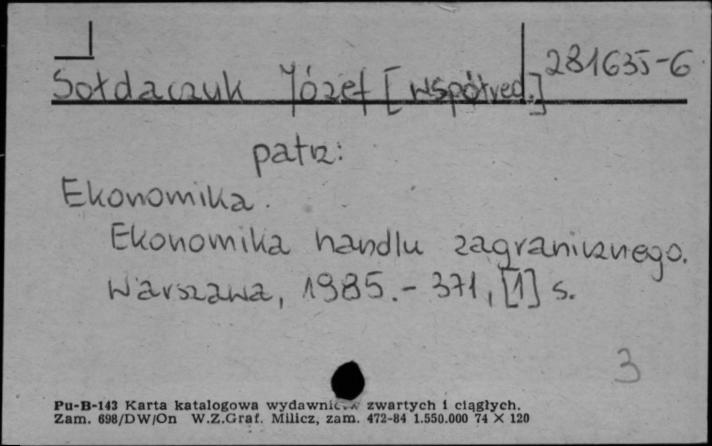 Sołdaczuk Józef [współred.] 281635-6
patrz:
Ekonomika.
Ekonomika handlu zagranicznego.
Warszawa, 1985.- 371, [1] s.
3
Pu-B-143 Karta katalogowa wydawnictw zwartych i ciągłych.
Zam. 698/DW/On W.Z.Graf. Milicz, zam. 472-84 1.550.000 74 × 120